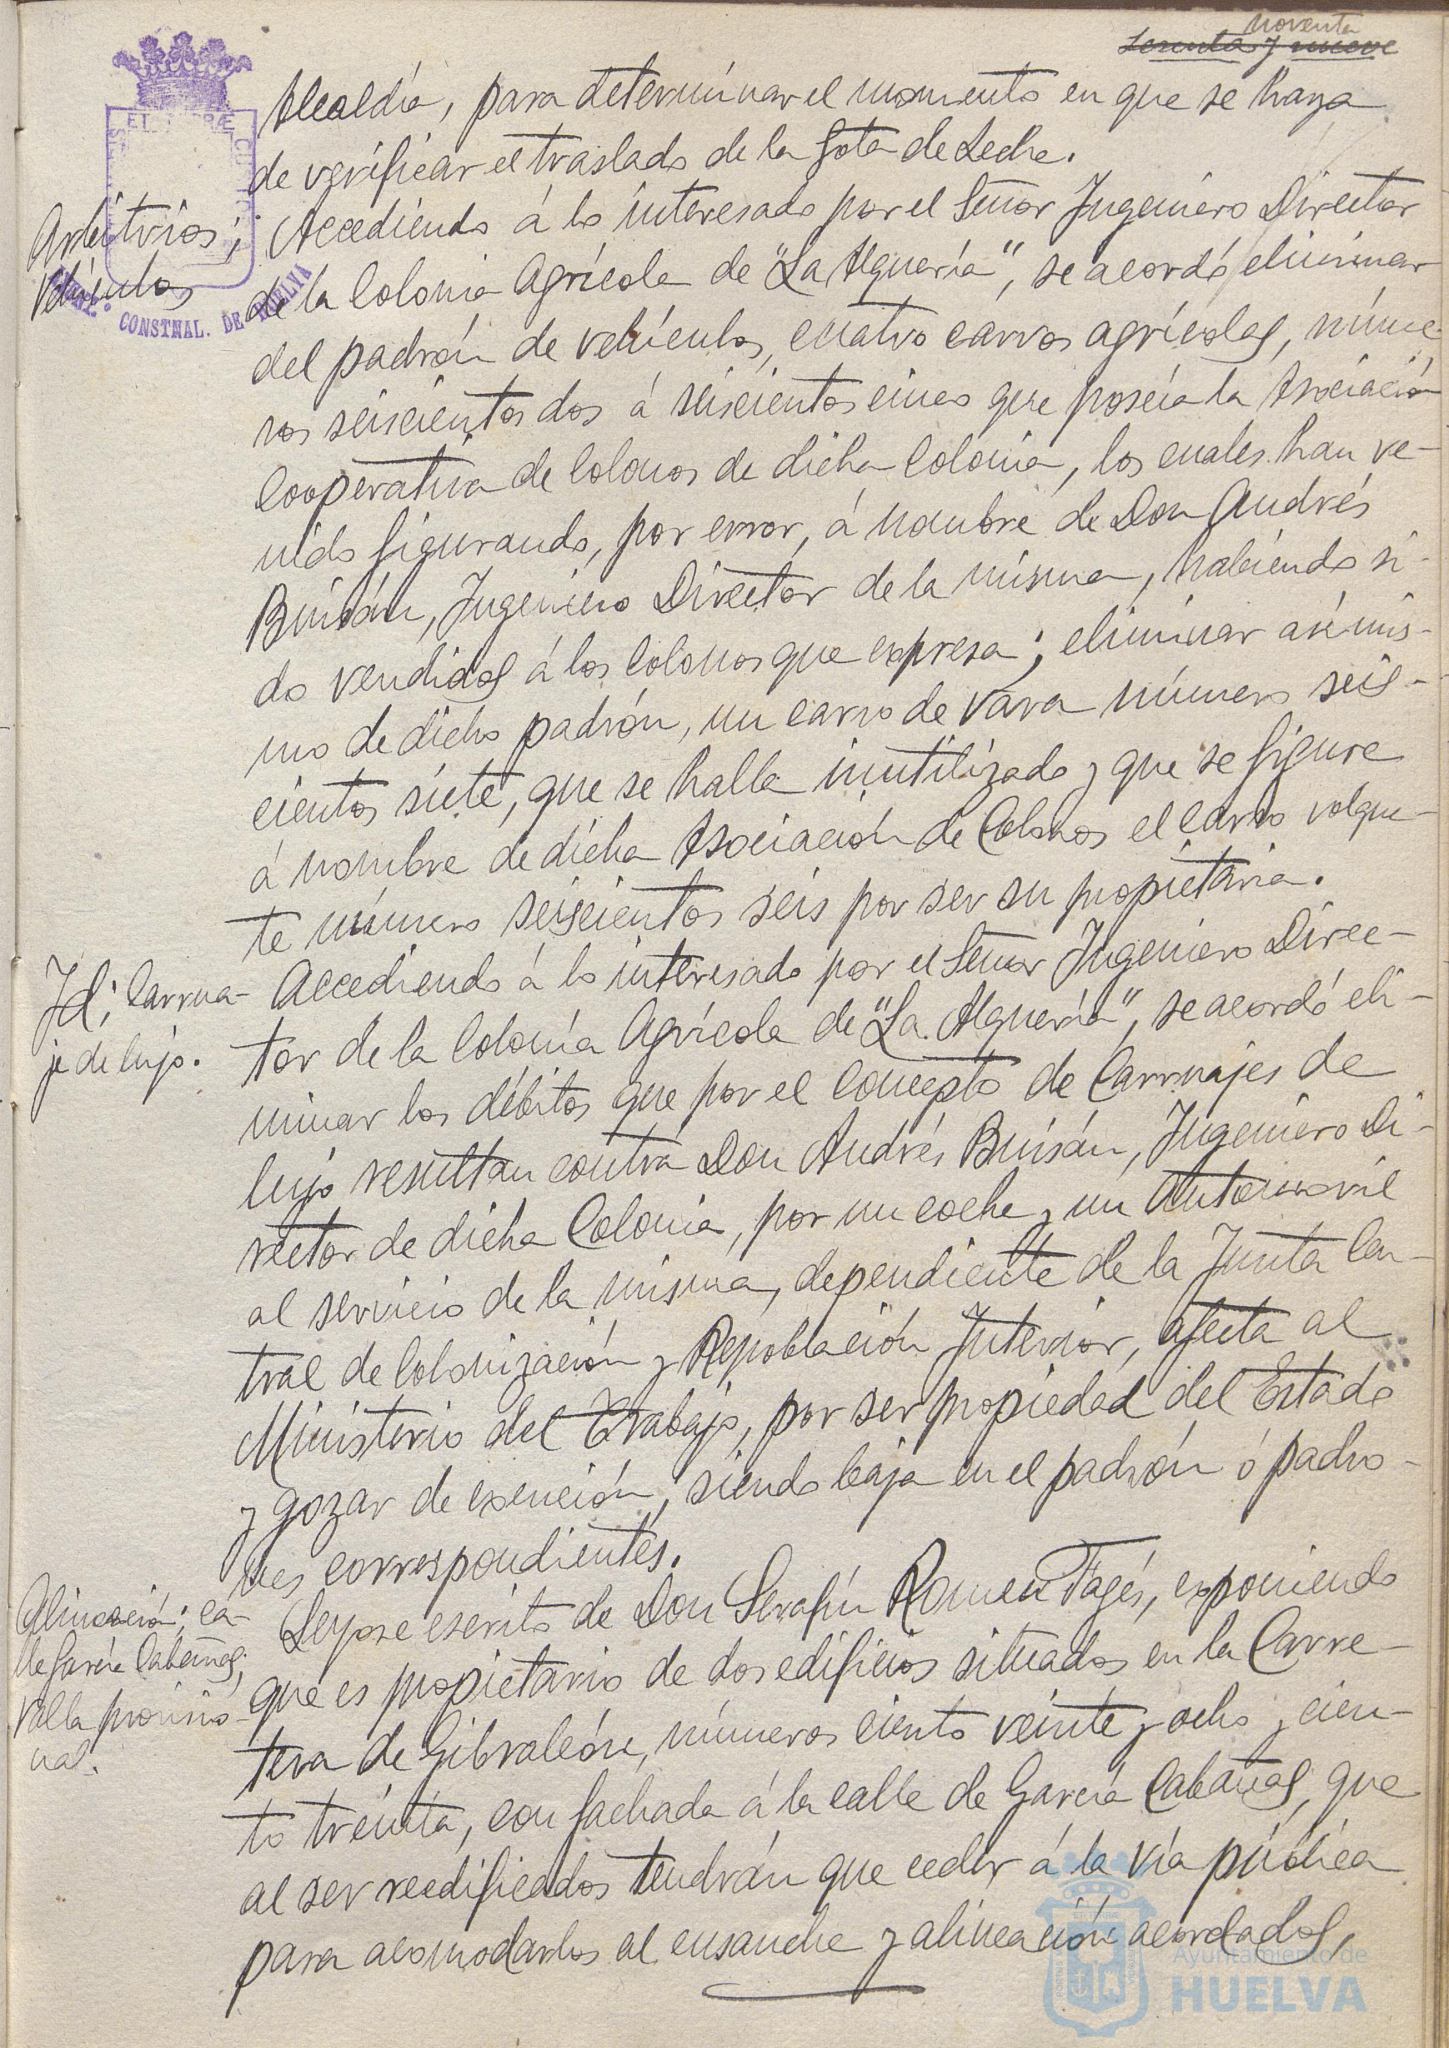 noventa
Sesenta y nueve
Alcaldía, para determinar el momento en que se haya
de verificar el traslado de la Gota de Leche.
Arbitrios;
Vehículos
CONSTNAL. DE HUELVA
Accediendo á lo interesado por el Señor Ingeniero Director
de la Colonia Agrícola de "La Alquería", se acordó eliminar
del padrón de vehículos, cuatro carros agrícolas, núme-
ros seiscientos dos á seiscientos cinco que poseía la Asociación
Cooperativa de Colonos de dicha Colonia, los cuales han ve-
nido figurando, por error, á nombre de Don Andrés
Buisán, Ingeniero Director de la misma, habiendo si-
do vendidos á los Colonos que expresa; eliminar asímis-
mo de dicho padrón, un carro de vara número seis-
cientos siete, que se halla inutilizado y que se figure
á nombre de dicha Asociación de Colonos el carro volque-
te número seiscientos seis por ser su propietaria.
Id; Carrua-
je de lujo.
Accediendo á lo interesado por el Señor Ingeniero Direc-
tor de la Colonia Agrícola de "La Alquería", se acordó eli-
minar los débitos que por el concepto de Carruajes de
lujo resultan contra Don Andrés Buisán, Ingeniero Di-
rector de dicha Colonia, por un coche y un Automovil
al servicio de la misma, dependiente de la Junta Cen-
tral de Colonización y Repoblación Interior, afecta al
Ministerio del Trabajo, por ser propiedad del Estado
y gozar de exención, siendo baja en el padrón ó padro-
nes correspondientes.
Alineación; ca-
lle García Cabañas;
valla provisio-
nal.
Leyose escrito de Don Serafín Romeu Fagés, exponiendo
que es propietario de dos edificios situados en la Carre-
tera de Gibraleón, números ciento veinte y ocho y cien-
to treinta, con fachada á la calle de García Cabañas, que
al ser reedificados tendrán que ceder á la vía pública
para acomodarlos al ensanche y alineación acordados,
Ayuntamiento de
HUELVA